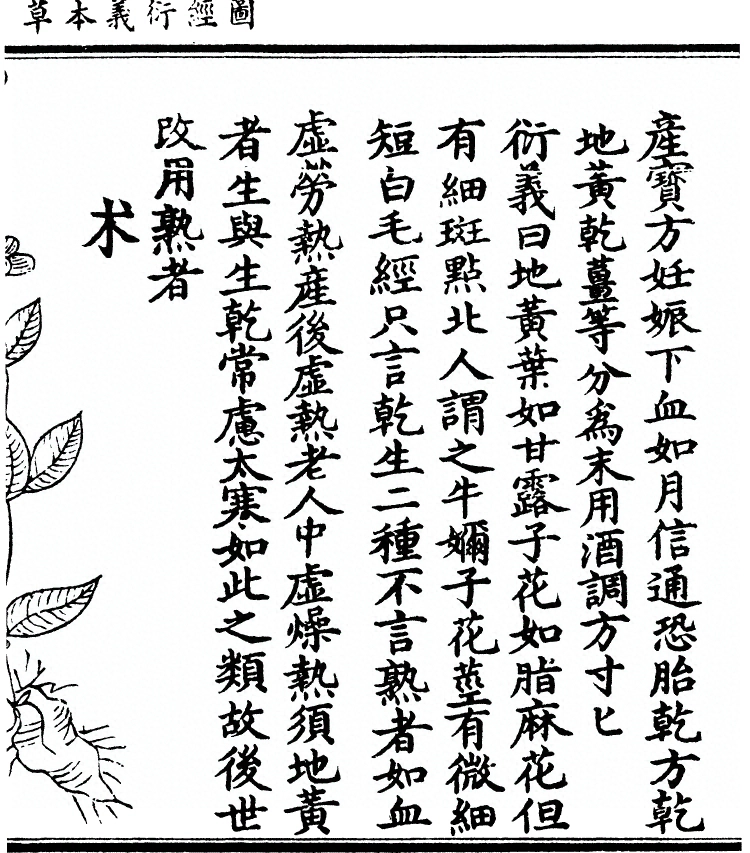 圖經衍義本草
產寶方妊娠下血如月信通恐胎乾方乾
地黃乾薑等分爲末用酒調方寸匕
衍義曰地黃葉如甘露子花如脂麻花但
有細斑點北人謂之牛嬭子花莖有微細
短白毛經只言乾生二種不言熟者如血
虛勞熱產後虛熱老人中虛燥熱須地黃
者生與生乾常慮太寒如此之類故後世
改用熟者
术